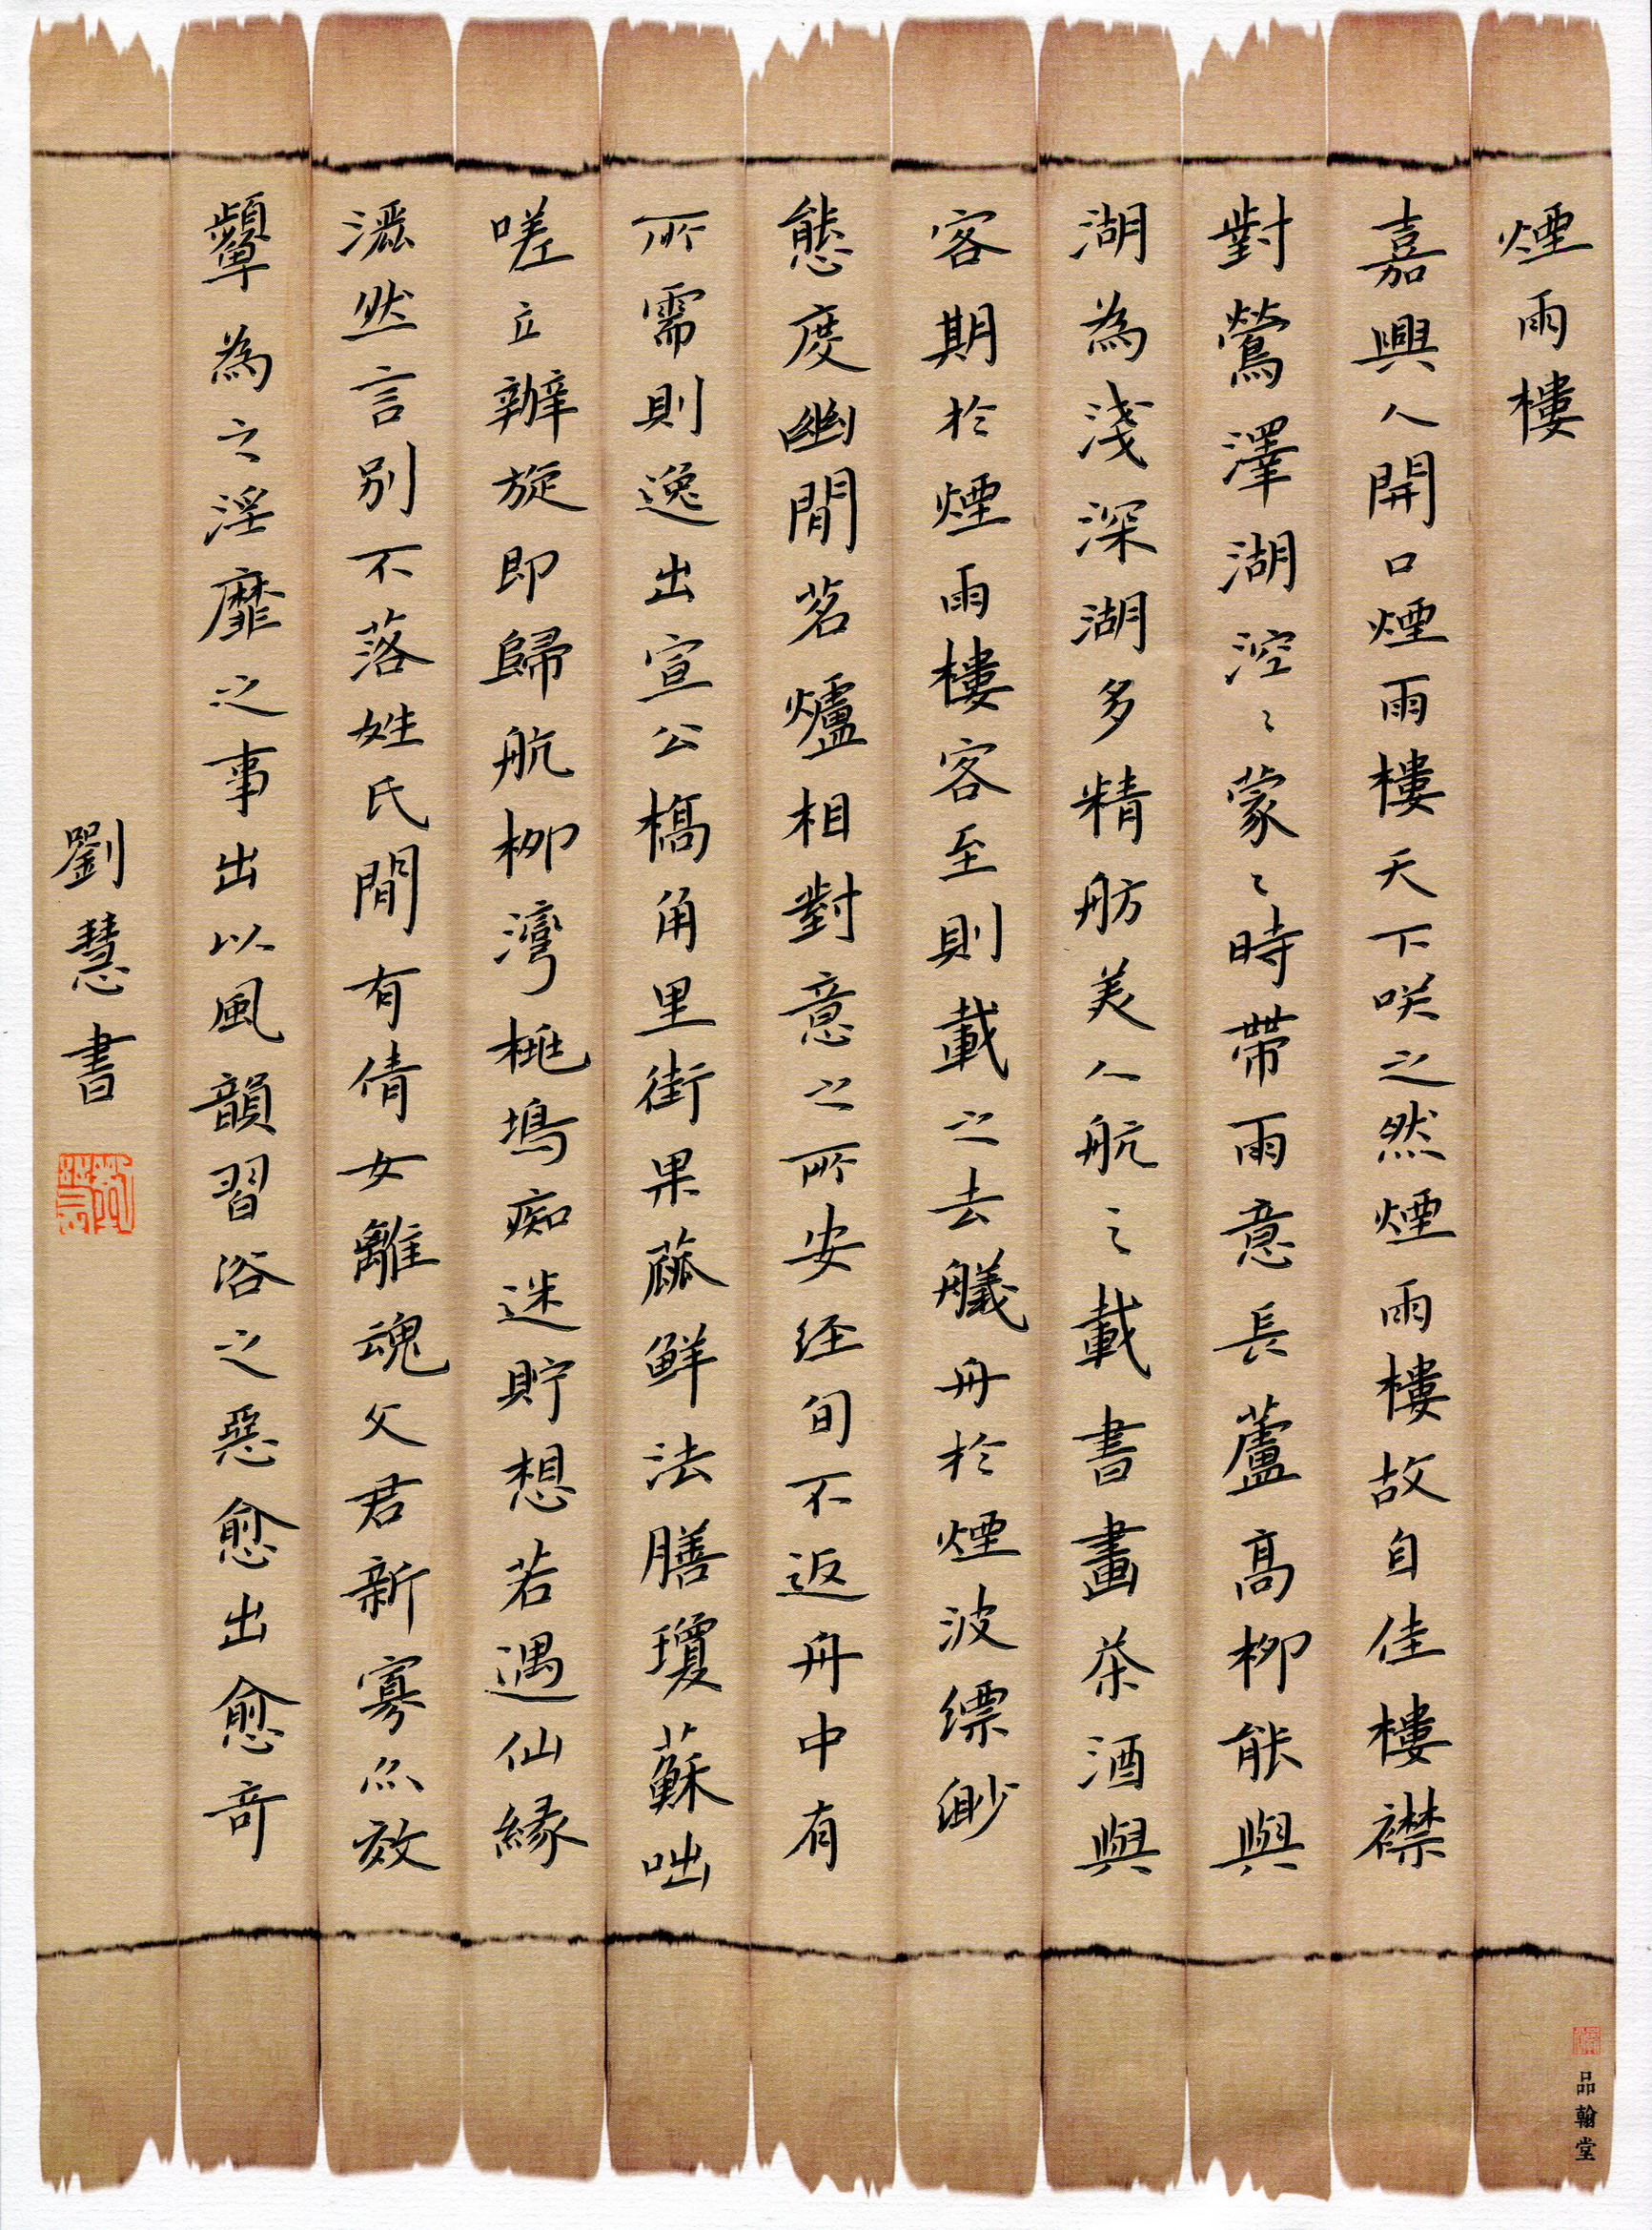 煙雨樓
嘉興人開口煙雨樓天下咲之然煙雨樓故自佳樓襟
對鶯澤湖涳〻蒙〻時帶雨意長蘆高柳能與
湖為淺深湖多精舫美人航之載書畫茶酒與
客期於煙雨樓客至則載之去艤舟於煙波縹緲
態度幽閒茗爐相對意之所安经旬不返舟中有
所需則逸出宣公橋角里街果蓏鮮法膳瓊蘇咄
嗟立辦旋即歸航柳灣桃塢痴迷貯想若遇仙緣
灑然言別不落姓氏間有倩女離魂父君新寡亦效
顰為之淫靡之事出以風韻習俗之惡愈出愈奇
劉慧書
品翰堂